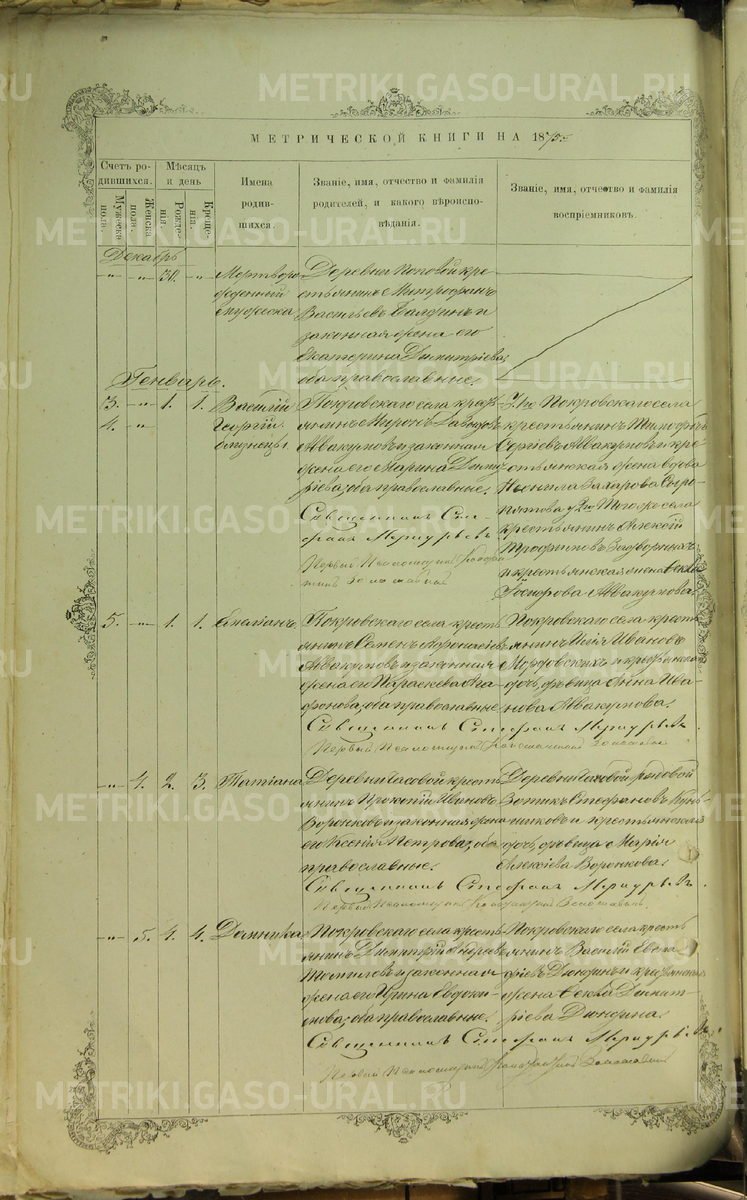 МЕТРИЧЕСКОЙ КНИГИ НА 1875
Счетъ ро-
дившихся.
Мужеска
пола.
Женска
пола.
Мѣсяцъ
и день
Рожде-
нія.
Креще-
нія.
Имена
родив-
шихся.
Званіе, имя, отчество и фамилія
родителей, и какого вѣроиспо-
вѣданія.
Званіе, имя, отчество и фамилія
воспріемниковъ.
Декабрь
" " 30. "
Мертворо-
жденный
мужеска
Деревни Поповой кре-
стьянинъ Митрофанъ
Васильевъ и
законная жена его
Екатерина Димитріева,
оба православные.
Генварь.
3. " 1. 1.
4. "
Василій
Георгій
близнецы.
Покровскаго села кресть-
янинъ Миронъ
Авакумовъ и законная
жена его Марина Дими-
тріева, оба православные.
Священникъ Сте-
фанъ Меркурьевъ
Первый Псаломщикъ
1., Покровскаго села
крестьянинъ Тимофей
Сергіевъ Авакумовъ и кре-
стьянская жена вдова
Неонила Захарова Сыро-
пятова, 2., Того же села
крестьянинъ Алексій
Трофимовъ
и крестьянская жена Ѳекла
Авакумова.
5. " 1. 1.
Покровскаго села кресть-
янинъ Семенъ
Авакумовъ и законная
жена его Параскева Ага-
фонова, оба православные.
Священникъ Стефанъ Меркурьевъ.
Первый Псаломщикъ
Покровскаго села кресть-
янинъ Илія Ивановъ
Мордовскихъ и крестьянская
дочь, дѣвица Анна Ива-
нова Авакумова.
" 4. 2. 3.
Татіана
Деревни Часовой кресть-
янинъ Прокопій Ивановъ
Воронковъ и законная жена
его Ксенія Петрова, оба
православные.
Священникъ Стефанъ Меркурьевъ.
Первый Псаломщикъ
Деревни Часовой рядовой
Зотикъ Стефановъ
и крестьянская
дочь, дѣвица Марія
Алексіева Воронкова.
" 5. 4. 4.
Домника
Покровскаго села кресть-
янинъ Димитрій
Томиловъ и законная
жена его Ирина Евдоки-
мова, оба православные.
Священникъ Стефанъ Меркурьевъ.
Первый Псаломщикъ
Покровскаго села кресть-
янинъ Василій
Дюкинъ и крестьянская
жена Ѳекла Димит-
ріева Дюкина.
METRIKI.GASO-URAL.RU